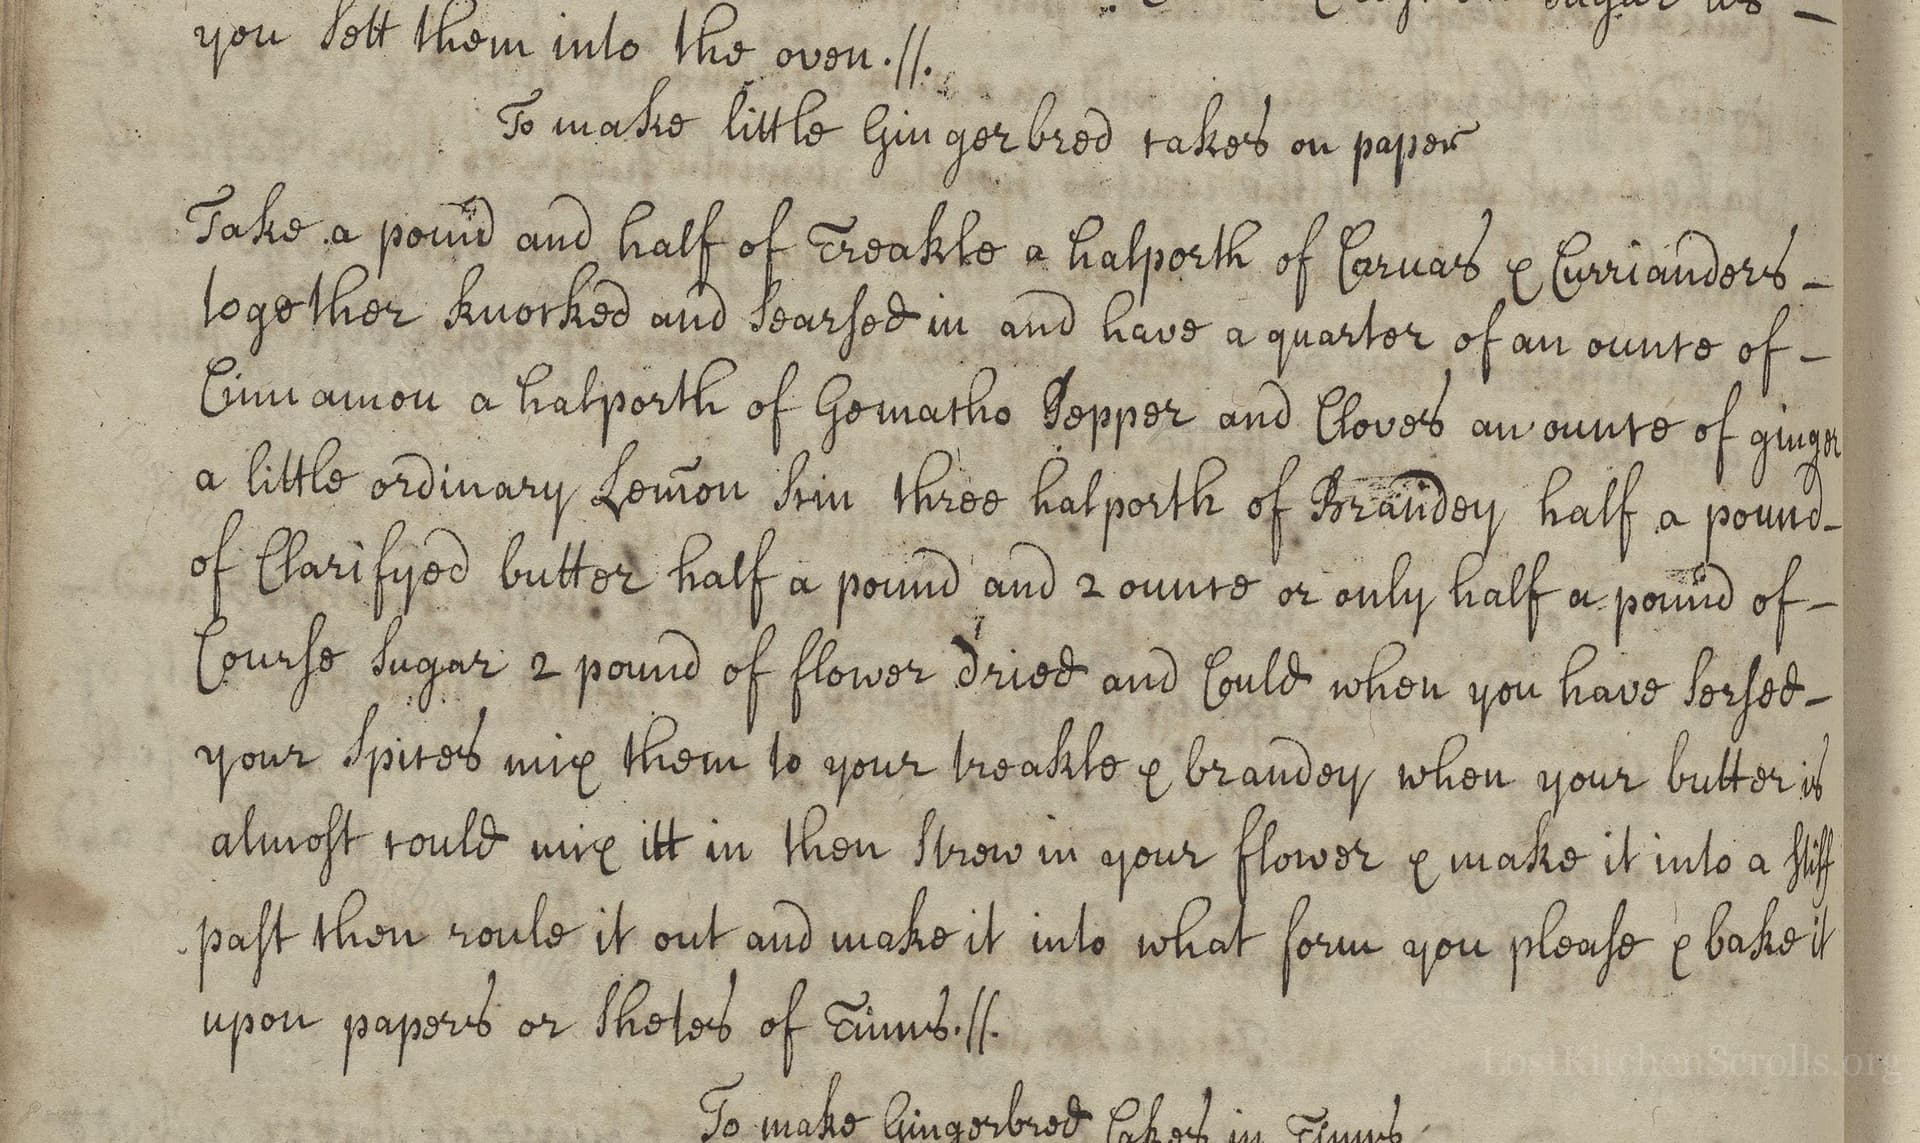 sugar as –
you sett them into the oven.//.
To make little Gingerbred cakes on paper
Take a pound and half of Treakle a halporth of Caruas & Currianders –
together knocked and searsed in and have a quarter of an ounce of –
Cinnamon a halporth of Gemacho Pepper and Cloves an ounce of ginger
a little ordinary Lemon skin three halporth of Brandey half a pound –
of Clarifyed butter half a pound and 2 ounce or only half a pound of –
Course sugar 2 pound of flower dried and Could when you have sersed –
your spices mix them to your treakle & brandey when your butter is
almost could mix itt in then strew in your flower & make it into a stiff
past then roule it out and make it into what form you please & bake it
upon papers or shetes of Tinns.//.
To make Gingerbred Cakes in Tinns
LostKitchenScrolls.org